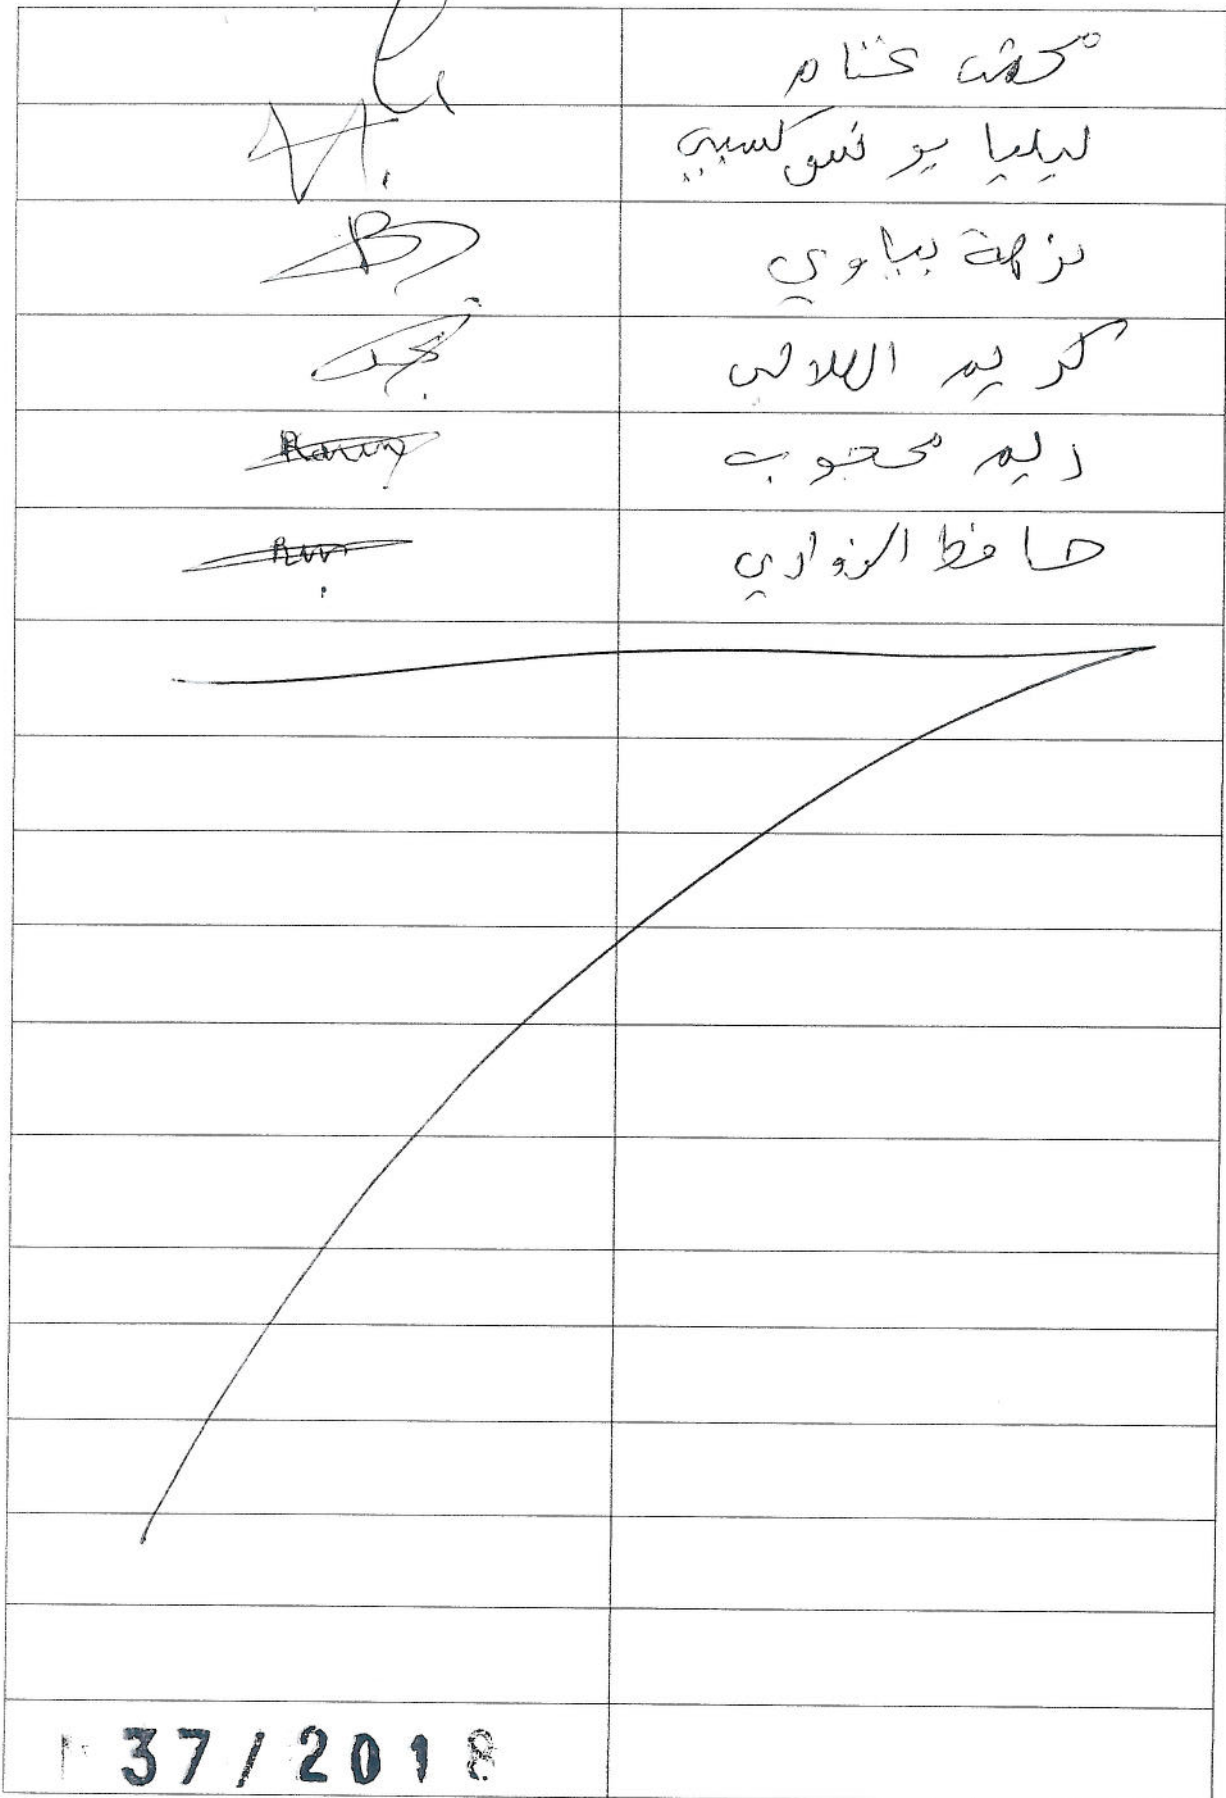 محمد غنام
ليليا يونس كسيبي
نزهة بياوي
كريم الهلالي
ريم محجوب
حافظ الزواري
37/2018